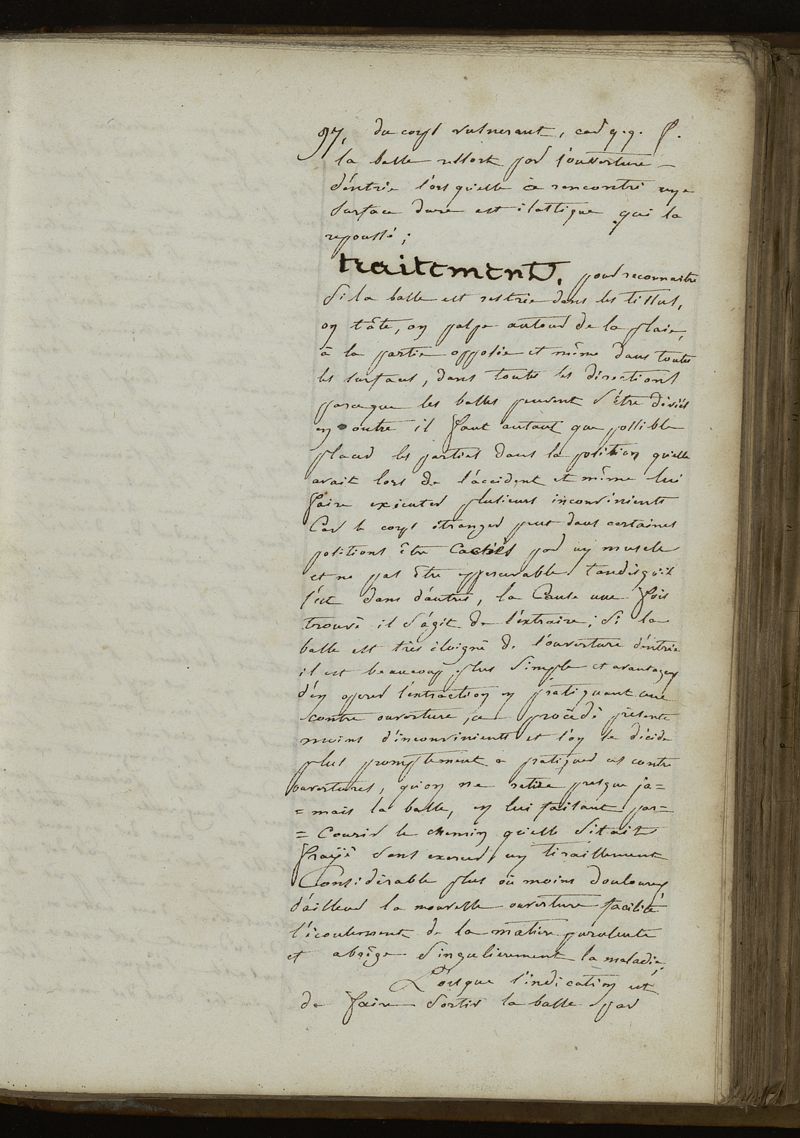 97, du corps vulnerant, car q.q. f.
la balle ressort par l'ouverture
d'entrée lorsqu'elle a rencontré une
surface dure est élastique qui la
repoussé;
traitement, pour reconnaitre
si la balle est restrée dans les tissus,
on tâte, on palpe autour de la plaie,
à la partie opposée et même dans toutes
les surfaces, dans toutes les directions
parceque les balles peuvent s'être divisés
en outre il faut autant que possible
placer les parties dans la position qu'elle
avait lors de l'accident et même lui
faire exécuter plusieurs inconvénients
Car le corps étranger peut dans certaines
positions être cachés par un muscle
et ne pas être appercevable tandisqu'il
l'est dans d'autres, la Cause une fois
trouvé il s'agit de l'extraire; Si la
balle est très éloigné de l'ouverture d'entrée
il est beaucoup plus simple et avantageux
d'en opérer l'extraction en pratiquant une
contre ouverture, ce procédé présente
moins d'inconvénients et l'on se décide
plus promptement a pratiquer ces contre
ouvertures, qu'on ne retire presque ja=
=mais la balle, en lui faisant par=
=Courir le chemin qu'elle s'était
frayé sans exercer un tiraillement
Considérable plus où moins douloureux
d'ailleur la nouvelle ouverture facilite
l'écoulement de la matière purulente
et abrège singulierement la maladie,
Lorsque l'indication est
de faire sortir la balle par